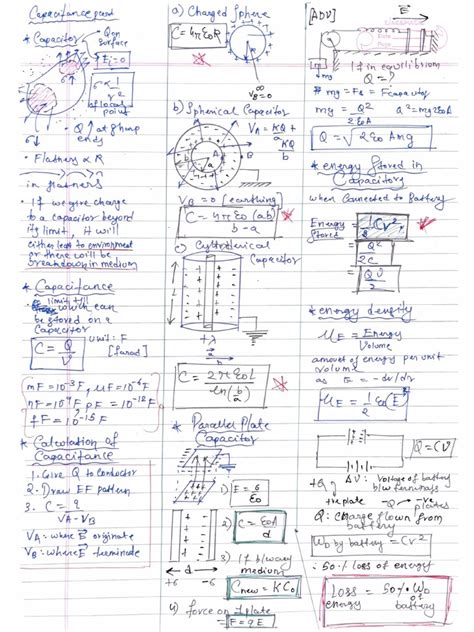 Capacitance part
* Capacitor
Q on
Surface
Ei = 0
σ ∝ 1/r²
of local
point
• Q at sharp
ends
• Flatness ∝ R
in flatness
• If we give charge
to a capacitor beyond
its limit, it will
either leak to environment
or there will be
breakdown in medium
* Capacitance
limit till
which can
be stored on a
Capacitor
C = Q/V
unit: F
[farad]
mF = 10⁻³F, μF = 10⁻⁶F
nF = 10⁻⁹F pF = 10⁻¹²F
fF = 10⁻¹⁵F
* Calculation of
Capacitance
1. Give Q to conductor
2. Draw EF pattern
3. C = q/(VA - VB)
VA: where E⃗ originate
VB: where E⃗ terminate
a) Charged Sphere
C = 4πε₀R
VB = 0
b) Spherical Capacitor
VA = KQ/a +
KQ/b
VB = 0 (earthing)
C = 4πε₀(ab)/(b-a)
c) Cylindrical
Capacitor
+λ
C = 2πε₀L/ln(b/a)
* Parallel Plate
Capacitor
1) E = σ/ε₀
2) C = ε₀A/d
3) If b/w any
medium
Cnew = KC₀
← d →
+σ -σ
4) force on 1 plate
= F = qE
[ADV]
E⃗
mg
If in equilibrium
Q = ?
# mg = FE = Fcapacitor
mg = Q²/2ε₀A
Q² = mg2ε₀A
Q = √2ε₀Amg
* energy stored in
Capacitors
when Connected to Battery
Energy
Stored
= 1/2 CV²
Q²/2C
= QV/2
* energy density
μE = Energy/Volume
amount of energy per unit
volume
as E = -dv/dr
μE = 1/2 ε₀(E²)
Q = CV
ΔV: Voltage of battery
b/w terminals
+Q
+ve plate
-Q
-ve
plates
Q: Charge flown from
battery
W₀ by battery = CV²
∴ 50% loss of energy
Loss = 50% W₀
energy
of
battery